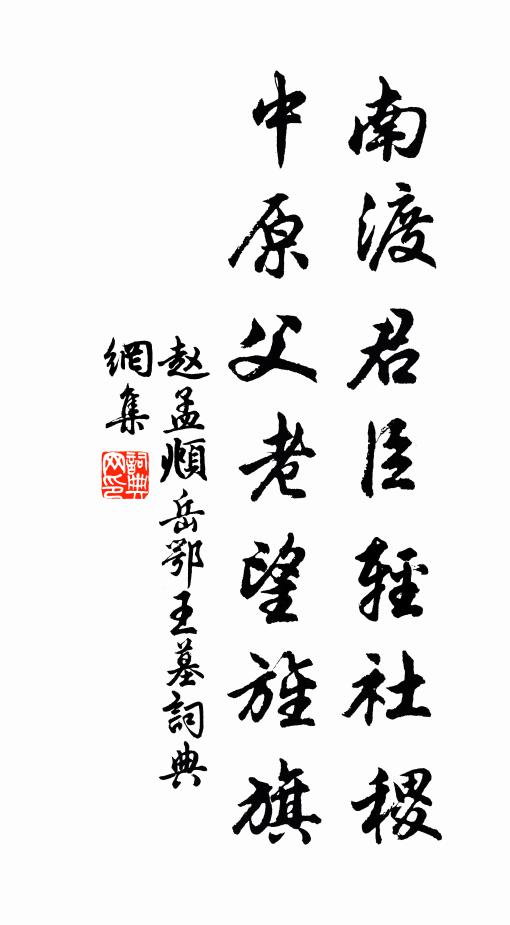 南渡君臣輕社稷
中原父老望旌旗
赵孟頫岳鄂王墓詞典
網集
詞典網印